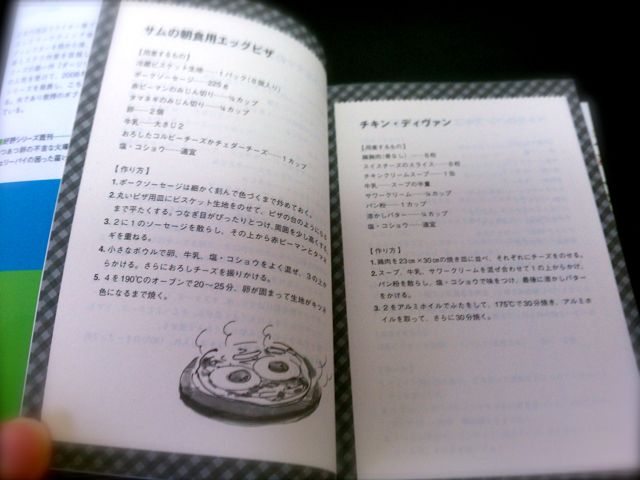 サムの朝食用エッグピザ
【用意するもの】
冷蔵ビスケット生地……1パック(8個入り)
ポークソーセージ……225g
赤ピーマンのみじん切り……¼カップ
タマネギのみじん切り……¼カップ
卵……2個
牛乳……大さじ2
おろしたコルビーチーズかチェダーチーズ……1カップ
塩・コショウ……適宜
【作り方】
1. ポークソーセージは細かく刻んで色づくまで炒めておく。
2. 丸いピザ用皿にビスケット生地をのせて、ピザの台のようになる
まで平たくする。つなぎ目がぴったりとつけ、周囲を少し高くする。
3. 2に1のソーセージを散らし、その上から赤ピーマンとタマネ
ギを重ねる。
4. 小さなボウルで卵、牛乳、塩・コショウをよく混ぜ、3の上か
らかける。さらにおろしチーズを振りかける。
5. 4を190℃のオーブンで20〜25分、卵が固まって生地がキツネ
色になるまで焼く。
チキン・ディヴァン
【用意するもの】
鶏胸肉(骨なし)……6枚
スイスチーズのスライス……6枚
チキンクリームスープ……1缶
牛乳……スープの半量
サワークリーム……¼カップ
パン粉……1カップ
溶かしバター……¼カップ
塩・コショウ……適宜
【作り方】
1. 鶏肉を23cm×30cmの焼き皿に並べ、それぞれにチーズをのせる。
2. スープ、牛乳、サワークリームを混ぜ合わせて1の上からかけ、
パン粉を散らし、塩・コショウで味をつけ、最後に溶かしバター
をかける。
3. 2をアルミホイルでふたをして、175℃で30分焼き、アルミホ
イルを取って、さらに30分焼く。